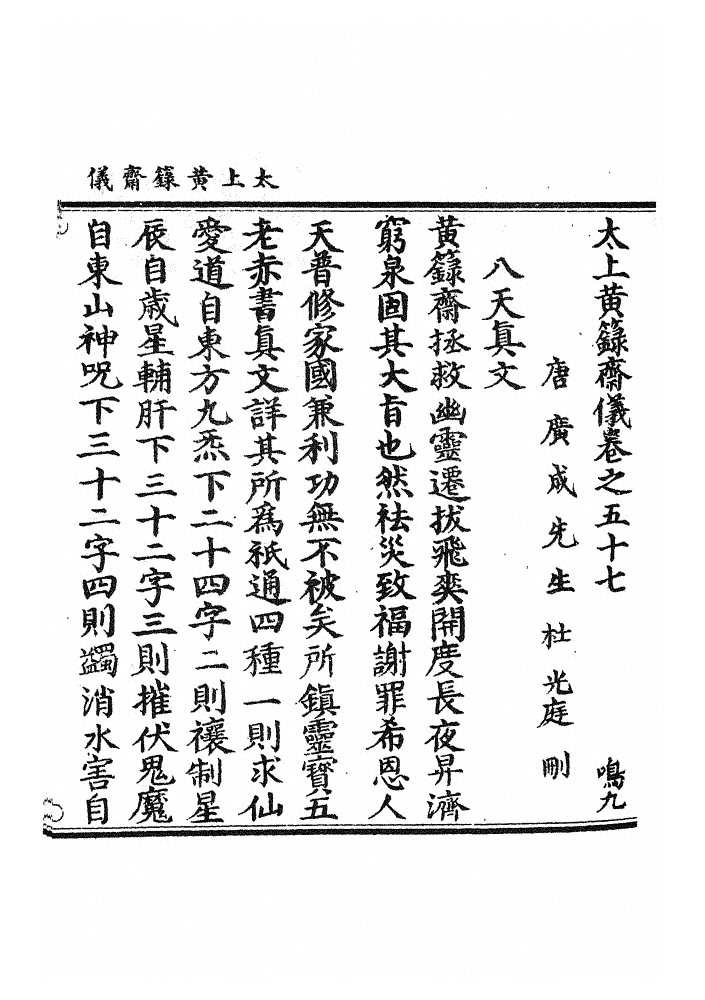 太上黃籙齋儀
太上黃籙齋儀卷之五十七 鳴九
唐廣成先生杜光庭刪
八天眞文
黃籙齋拯救幽靈遷拔飛爽開度長夜昇濟
窮泉固其大旨也然祛災致福謝罪希恩人
天普修家國兼利功無不被矣所鎮靈寶五
老赤書眞文詳其所爲秖通四種一則求仙
愛道自東方九炁下二十四字二則禳制星
辰自歳星輔肝下三十二字三則摧伏鬼魔
自東山神呪下三十二字四則蠲消水害自